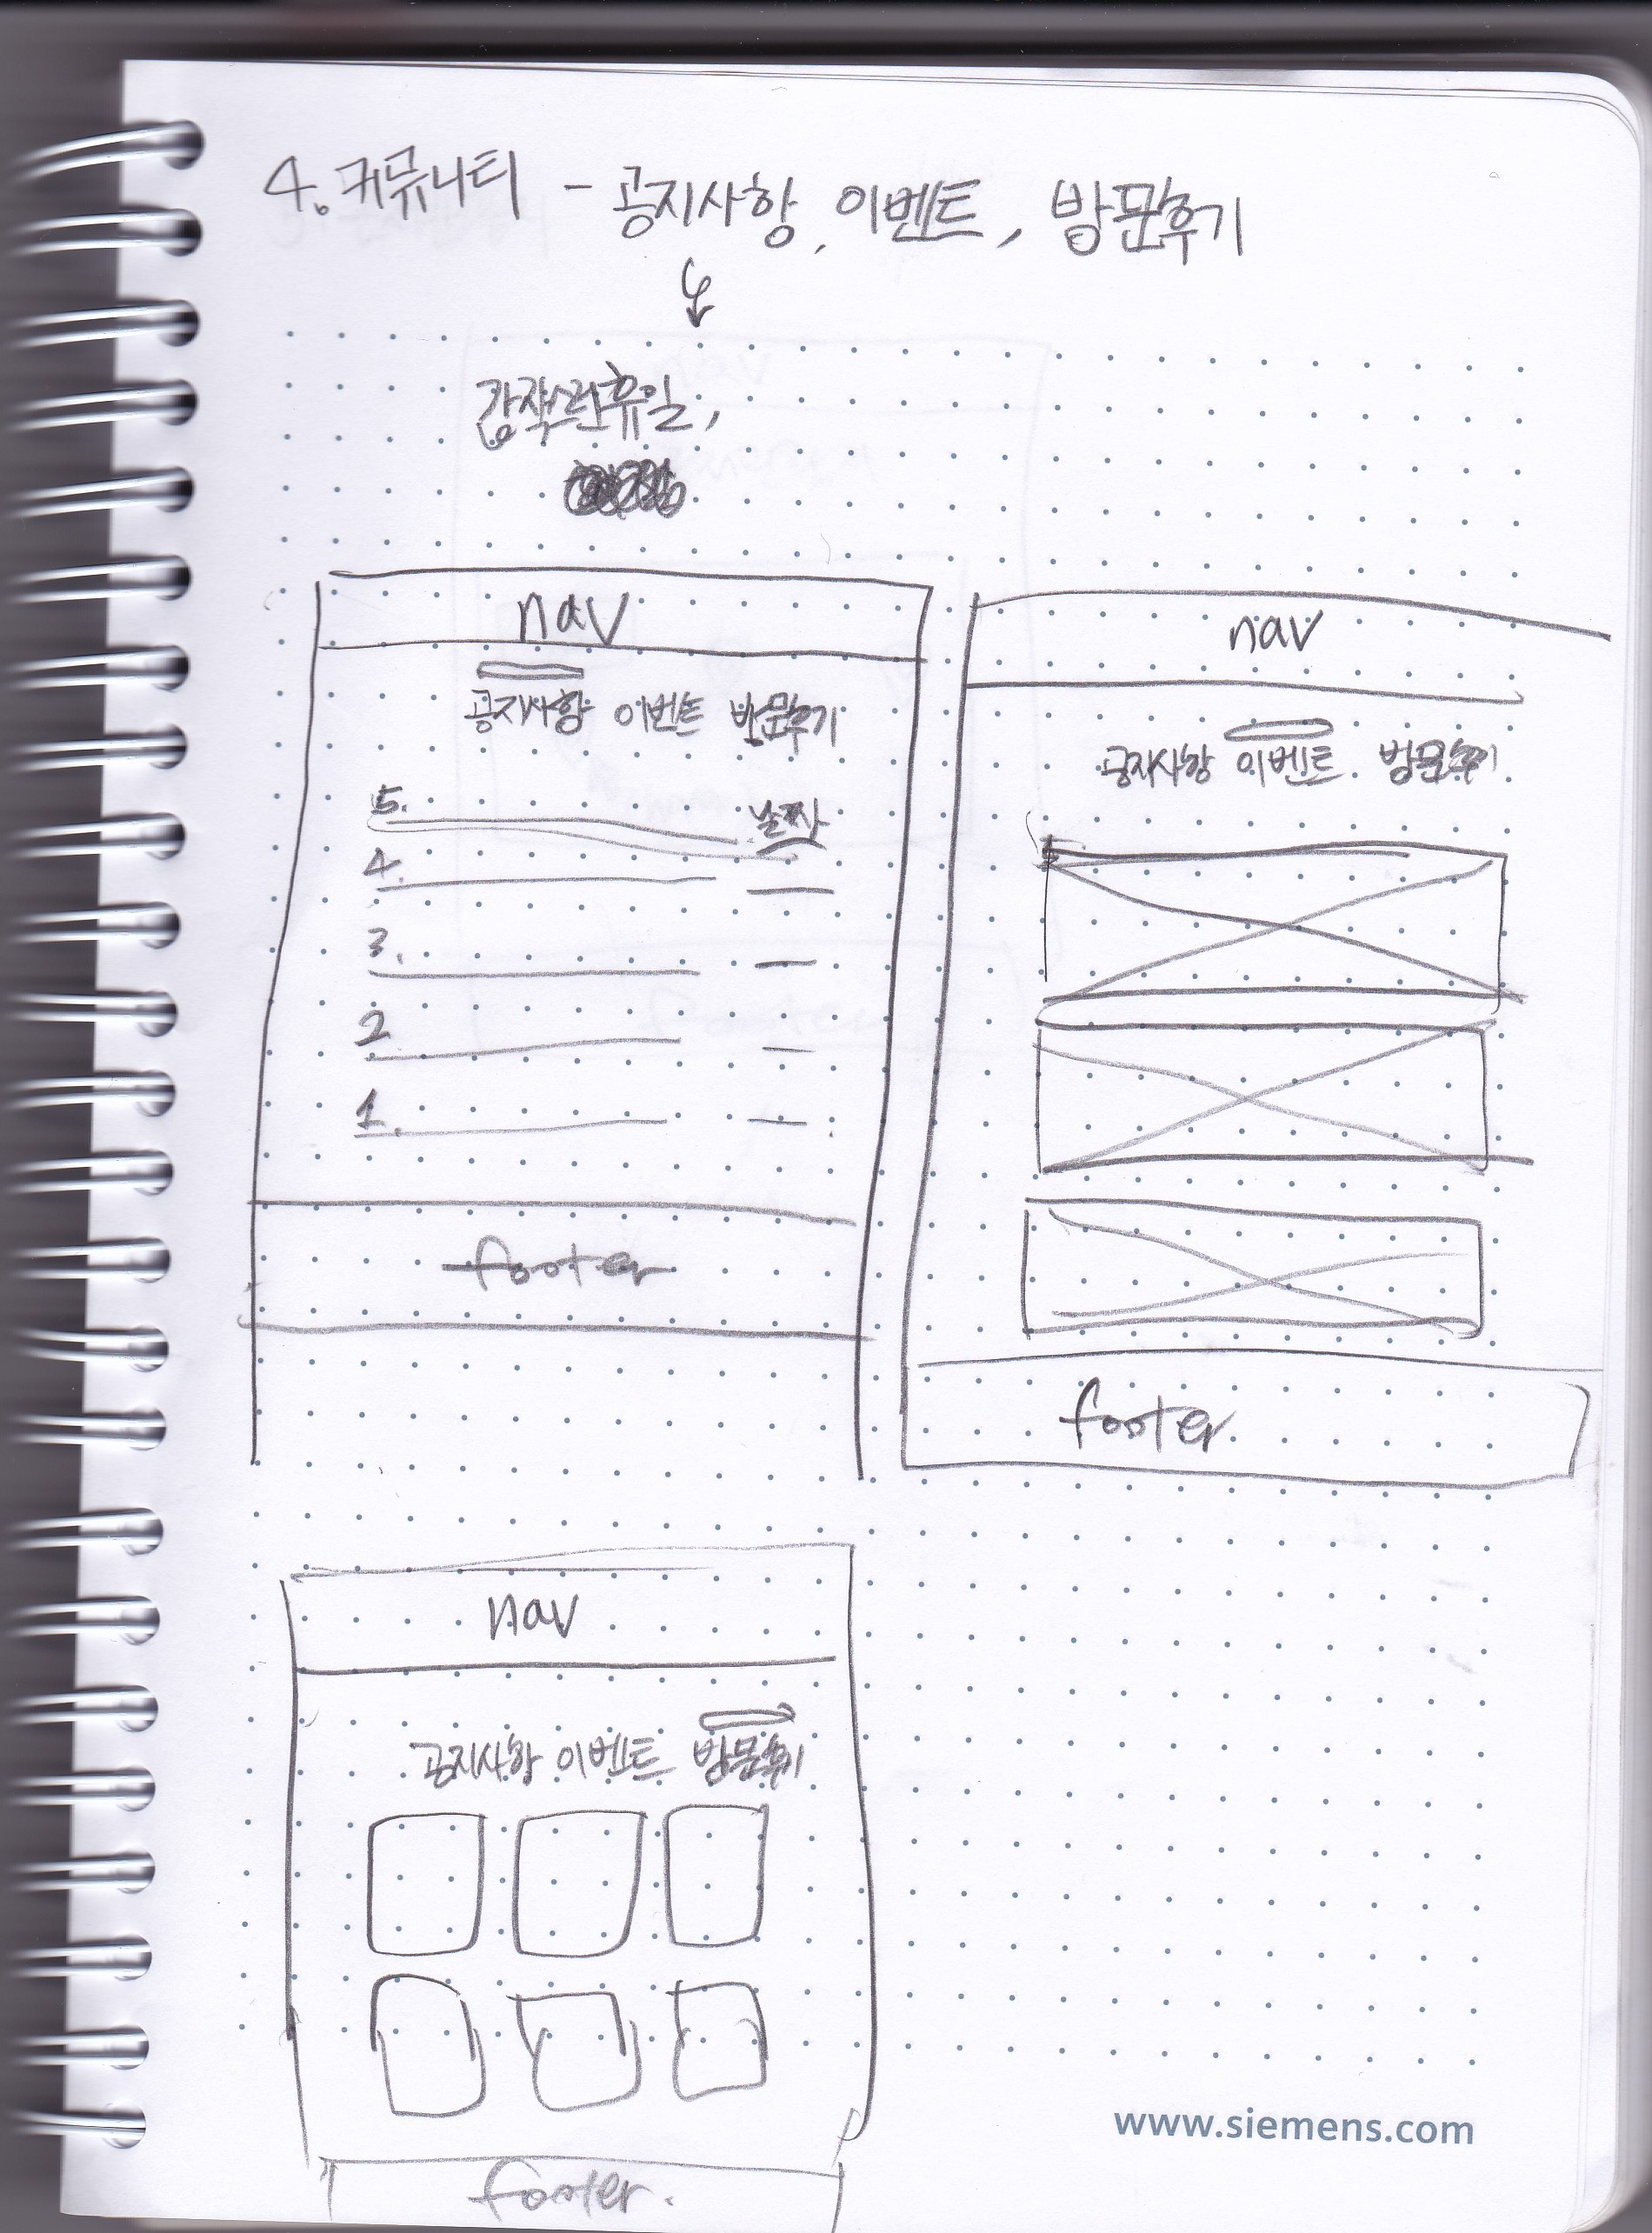 4. 커뮤니티 - 공지사항, 이벤트, 방문후기
갑작스런휴일,
nav
공지사항 이벤트 방문후기
5. 날짜
4.
3.
2
1.
footer
nav
공지사항 이벤트 방문후기
footer
nav
공지사항 이벤트 방문후기
footer.
www.siemens.com